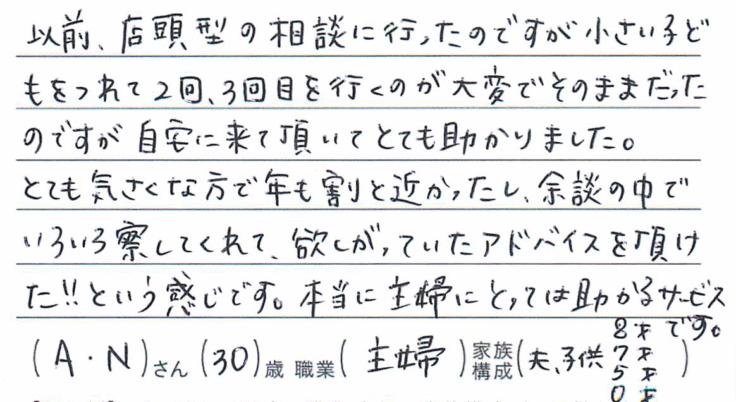 以前、店頭型の相談に行ったのですが小さい子ど
もをつれて2回、3回目を行くのが大変でそのままだった
のですが自宅に来て頂いてとても助かりました。
とても気さくな方で年も割と近かったし、余談の中で
いろいろ察してくれて、欲しがっていたアドバイスを頂け
た!!という感じです。本当に主婦にとっては助かるサービス
です。
(A・N)さん(30)歳 職業(主婦)家族構成(夫、子供 8才 7才 5才 0才)